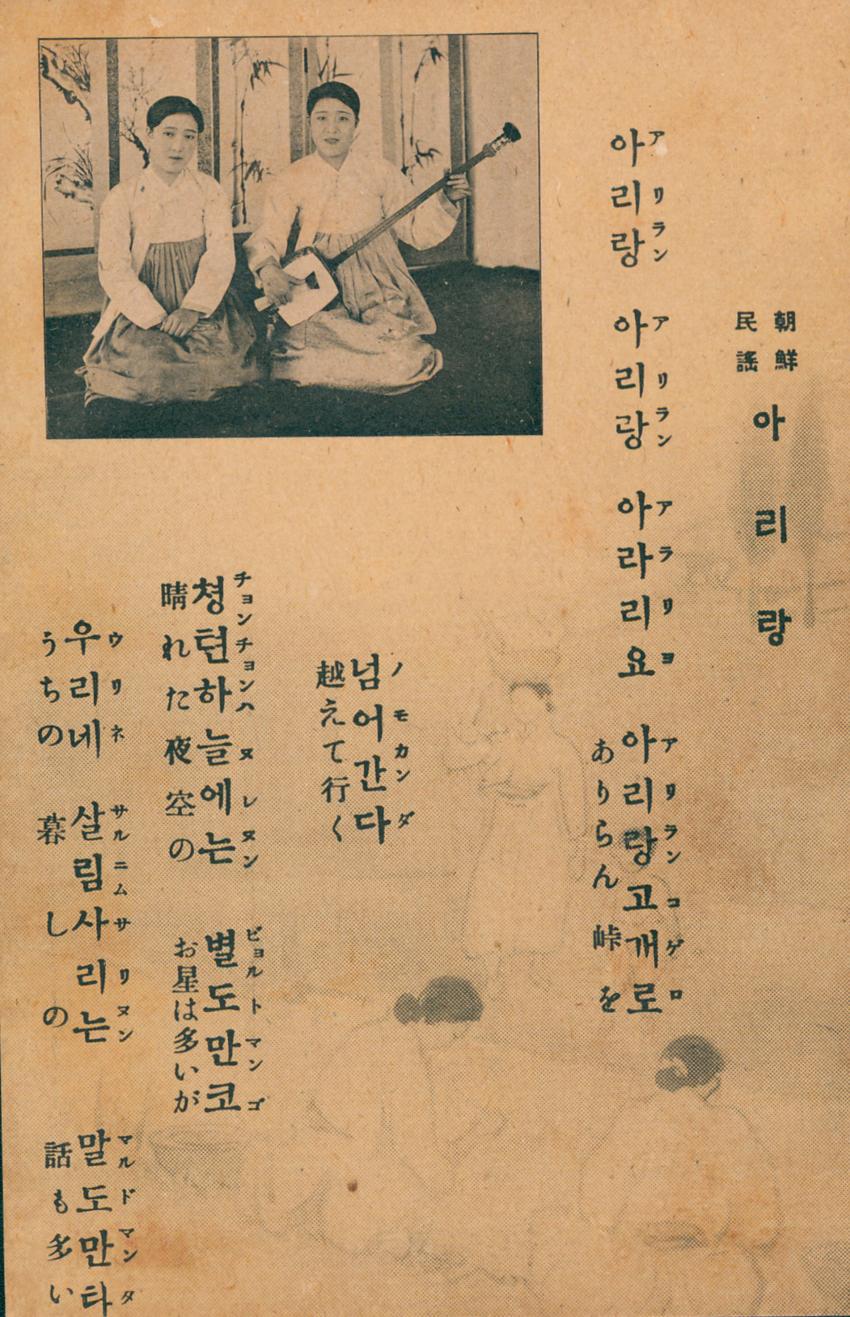 朝鮮
民謠
아리랑
아리랑 아리랑 아라리요 아리랑고개로
アリラン アリラン アラリヨ アリランコゲロ
ありらん峠を
넘어간다
ノモカンダ
越えて行く
청텬하늘에는 별도만코
チョンチョンハヌレヌン ビョルトマンゴ
晴れた夜空の お星は多いが
우리네 살림사리는 말도만타
ウリネ サルニムサリヌン マルドマンタ
うちの 暮しの 話も多い